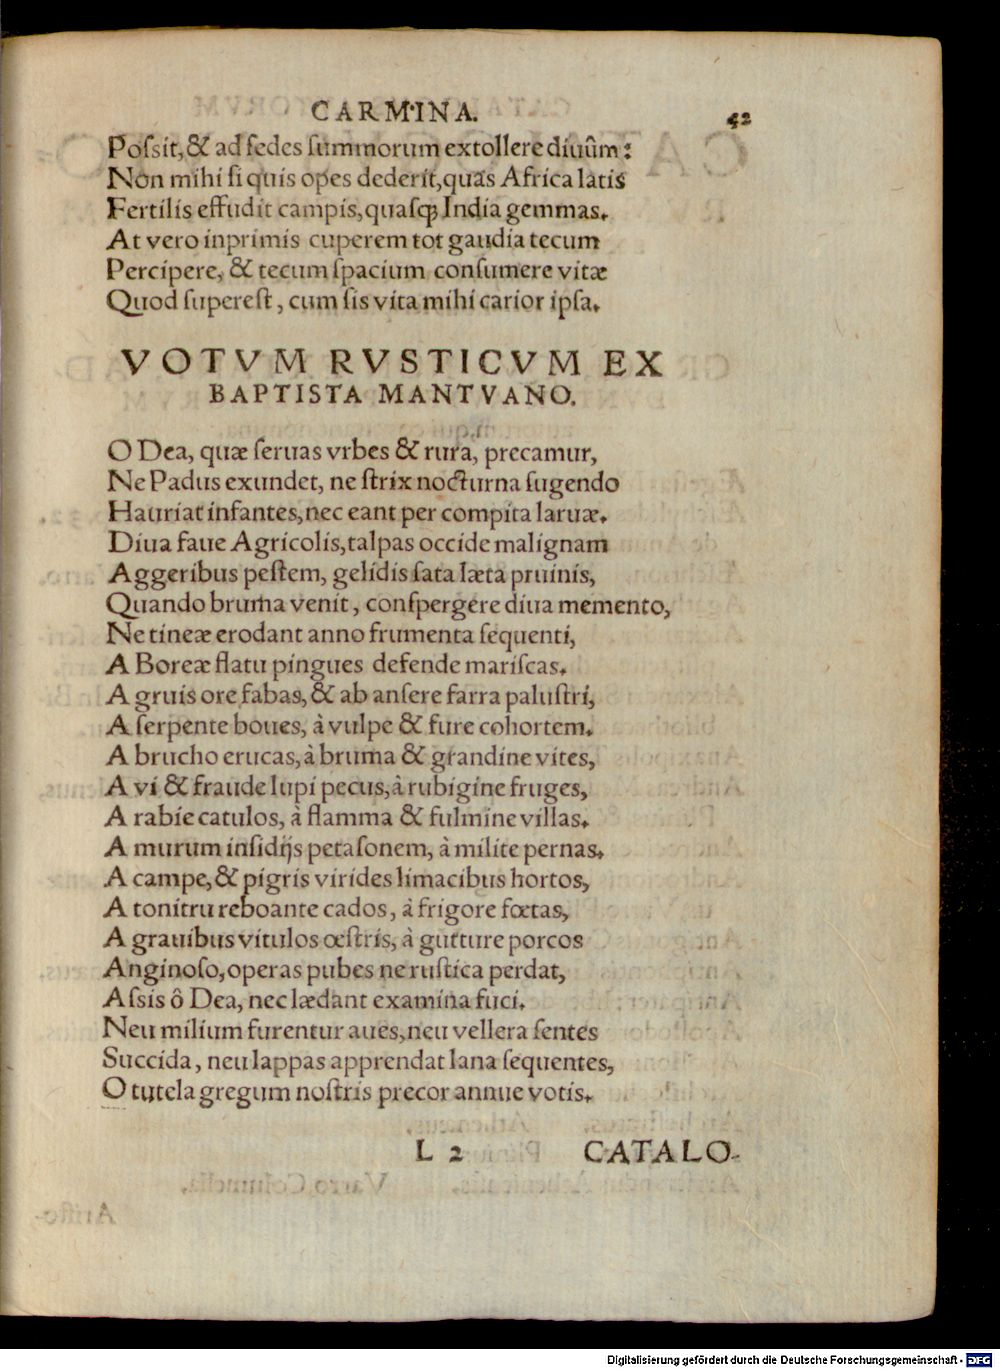 CARMINA. 42
Poſsit, & ad ſedes ſummorum extollere diuûm:
Non mihi ſi quis opes dederit, quas Africa latis
Fertilis effudit campis, quaſq; India gemmas.
At vero inprimis cuperem tot gaudia tecum
Percipere, & tecum ſpacium conſumere vitæ
Quod ſupereſt, cum ſis vita mihi carior ipſa.
VOTVM RVSTICVM EX
BAPTISTA MANTVANO.
O Dea, quæ ſeruas vrbes & rura, precamur,
Ne Padus exundet, ne ſtrix nocturna ſugendo
Hauriat infantes, nec eant per compita laruæ.
Diua faue Agricolis, talpas occide malignam
Aggeribus peſtem, gelidis ſata læta pruinis,
Quando bruma venit, conſpergere diua memento,
Ne tineæ erodant anno frumenta ſequenti,
A Boreæ flatu pingues defende mariſcas.
A gruis ore fabas, & ab anſere farra paluſtri,
A ſerpente boues, à vulpe & fure cohortem.
A brucho erucas, à bruma & grandine vites,
A vi & fraude lupi pecus, à rubigine fruges,
A rabie catulos, à flamma & fulmine villas.
A murum inſidijs petaſonem, à milite pernas.
A campe, & pigris virides limacibus hortos,
A tonitru reboante cados, à frigore fœtas,
A grauibus vitulos œſtris, à gutture porcos
Anginoſo, operas pubes ne ruſtica perdat,
Aſsis ô Dea, nec lædant examina fuci.
Neu milium furentur aues, neu vellera ſentes
Succida, neu lappas apprendat lana ſequentes,
O tutela gregum noſtris precor annue votis.
L 2 CATALO-
Digitalisierung gefördert durch die Deutsche Forschungsgemeinschaft - DFG